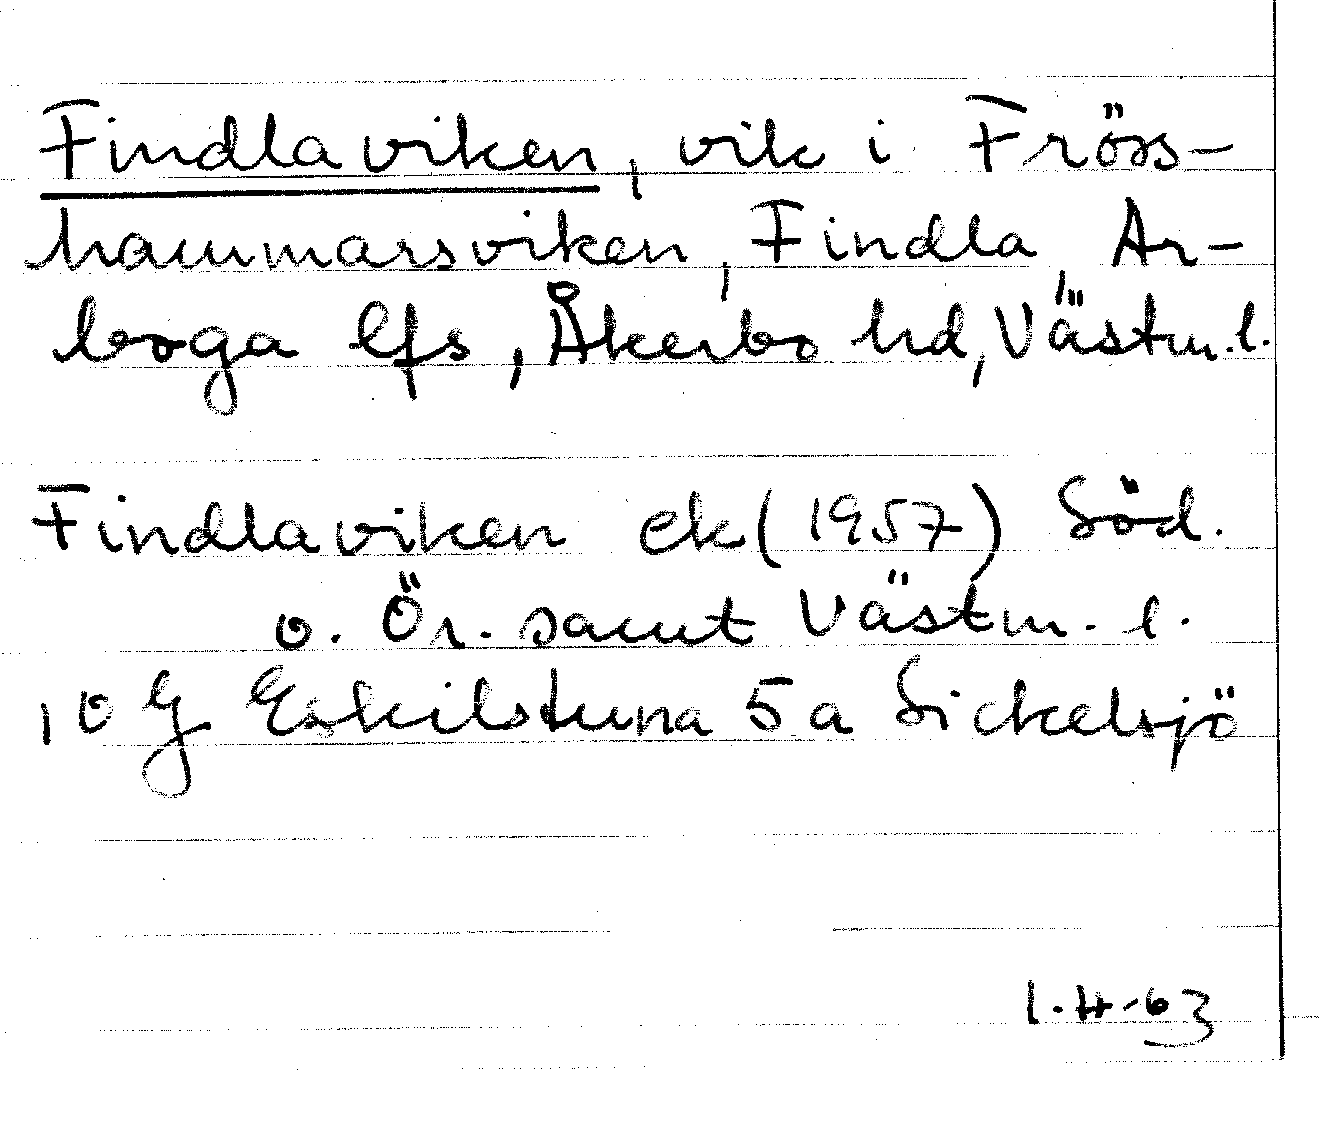 Findlaviken, vik i Fröss-
hammarsviken, Findla, Ar-
boga lfs, Åkerbo hd, Västm.l.
Findlaviken ek(1957) Söd.
o. Ör. samt Västm. l.
10 G Eskilstuna 5 a Sickelsjö
I.H-63